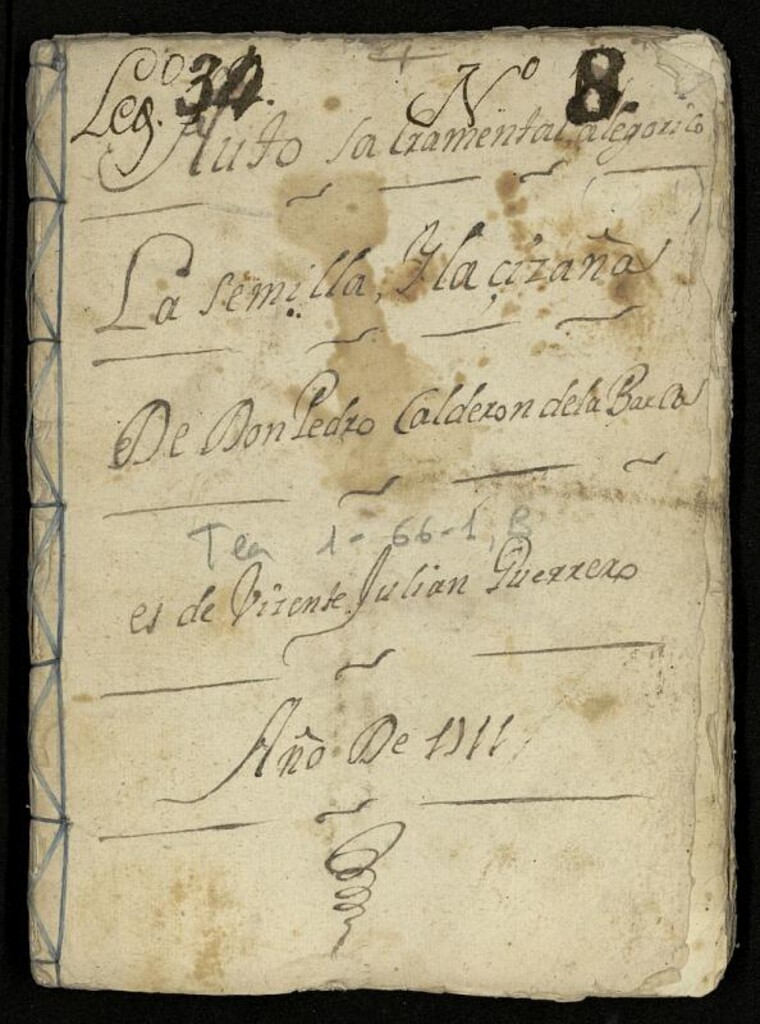 Leg.º 34. Nº 8
Auto sacramental, alegorico
La semilla, Y la çizaña
De Don Pedro Calderon de la Barca
Tea 1-66-1, B
es de Vizente Julian Guerrero
Año De 1711